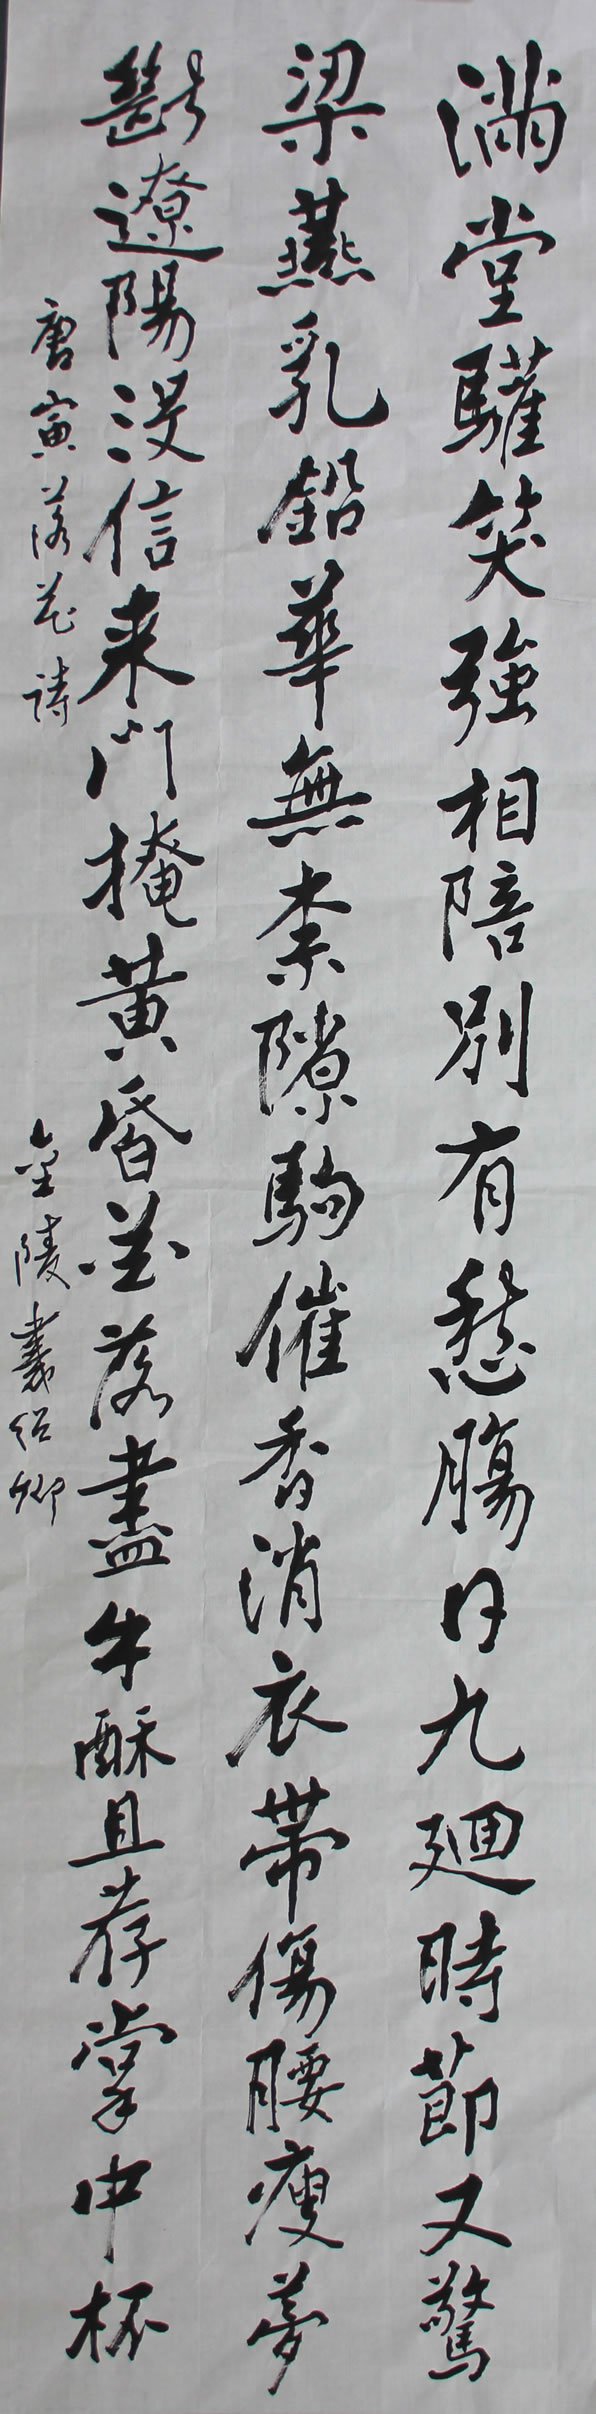 滿堂驩笑強相陪別有愁腸日九廻時節又驚
梁燕乳鉛華無柰隙駒催香消衣帶傷腰瘦夢
斷遼陽沒信来門掩黄昏花落盡牛酥且荐掌中杯
唐寅落花詩
金陵龔紹卿